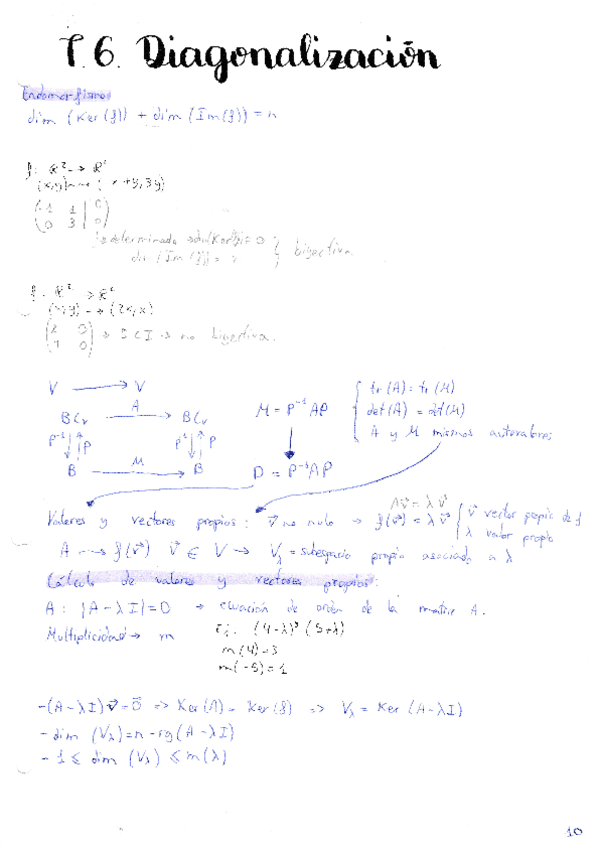 T.6. Diagonalización
Endomorfismos
dim (Ker(f)) + dim (Im(f)) = n
f: R² → R²
(x,y) → (x+y, 3y)
(1 1 | 0
0 3 | 0)
determinado → dim(Ker(f)) = 0
dim (Im(f)) =
} bijectiva
f: R² → R²
(x,y) → (2x, x)
(2 0
1 0) → SCI → no bijectiva.
V → V
B_{CV} A→ B_{CV}
P⁻¹ P P⁻¹ P
B M→ B
M = P⁻¹AP
D = P⁻¹AP
{ tr(A) = tr(M)
det(A) = det(M)
A y M mismos autovalores
Av⃗ = λv⃗
Valores y vectores propios: v⃗ no nulo → f(v⃗) = λv⃗ { v⃗ vector propio de f
λ valor propio
A → f(v⃗) v⃗ ∈ V → V_λ = subespacio propio asociado a λ
Cálculo de valores y vectores propios:
A: |A-λI| = 0 → ecuación de orden de la matriz A.
Multiplicidad → m
ej. (4-λ)³ (5+λ)
m(4)=3
m(-5)=1
-(A-λI)v⃗ = 0⃗ => Ker(A) = Ker(f) => V_λ = Ker (A-λI)
- dim (V_λ) = n - rg(A-λI)
- 1 ≤ dim (V_λ) ≤ m(λ)
10